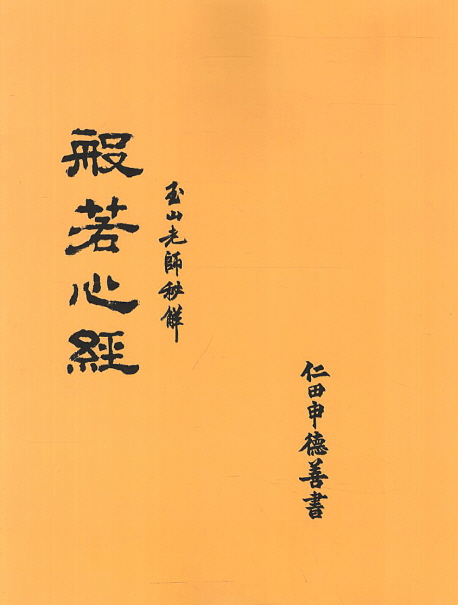 般若心經
玉山老師秘解
仁田申德善書